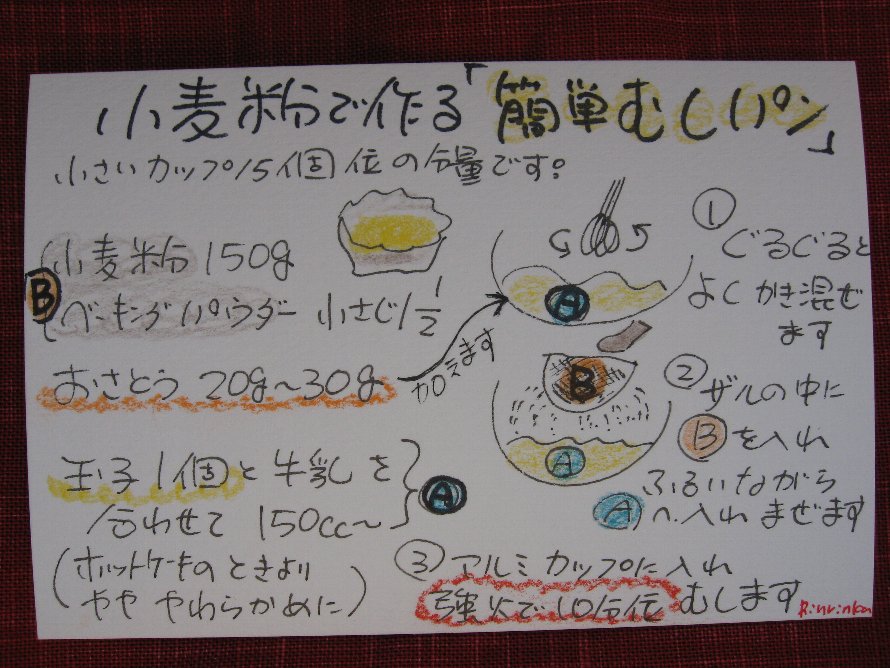 小麦粉で作る「簡単むしパン」
小さいカップ15個位の分量です。
B
小麦粉 150g
ベーキングパウダー 小さじ1 1/2
おさとう 20g~30g
加えます
玉子1個と牛乳を
合わせて 150cc~
A
(ホットケーキのときより
やや やわらかめに)
A
① ぐるぐると
よく かき混ぜ
ます
B
A
② ザルの中に
Bを入れ
ふるいながら
Aへ入れ まぜます
③ アルミカップに入れ
強火で10分位 むします
Rinrinkan